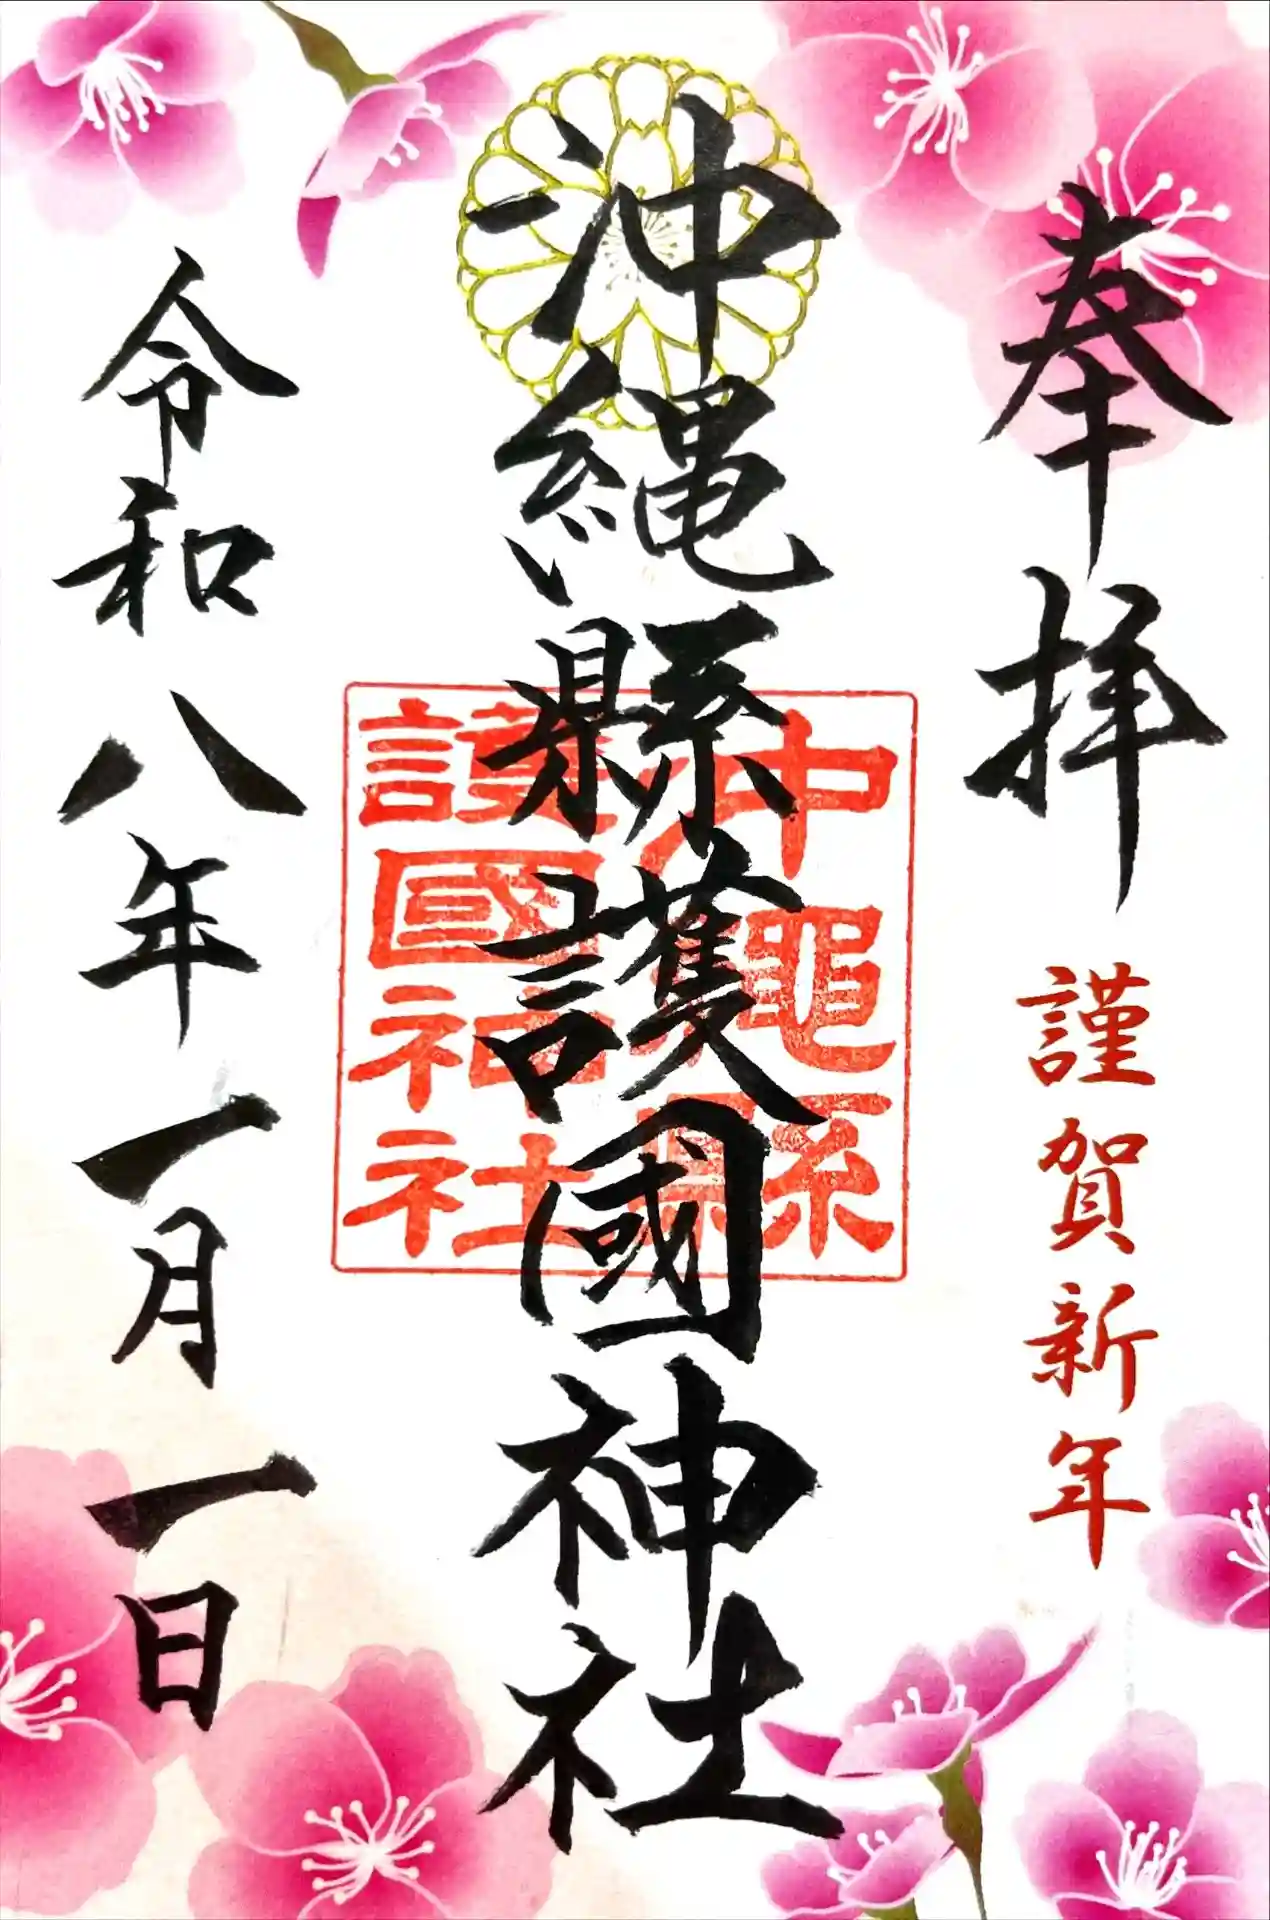 奉拝
謹賀新年
沖縄縣護國神社
沖縄縣
護國神社
令和八年一月一日